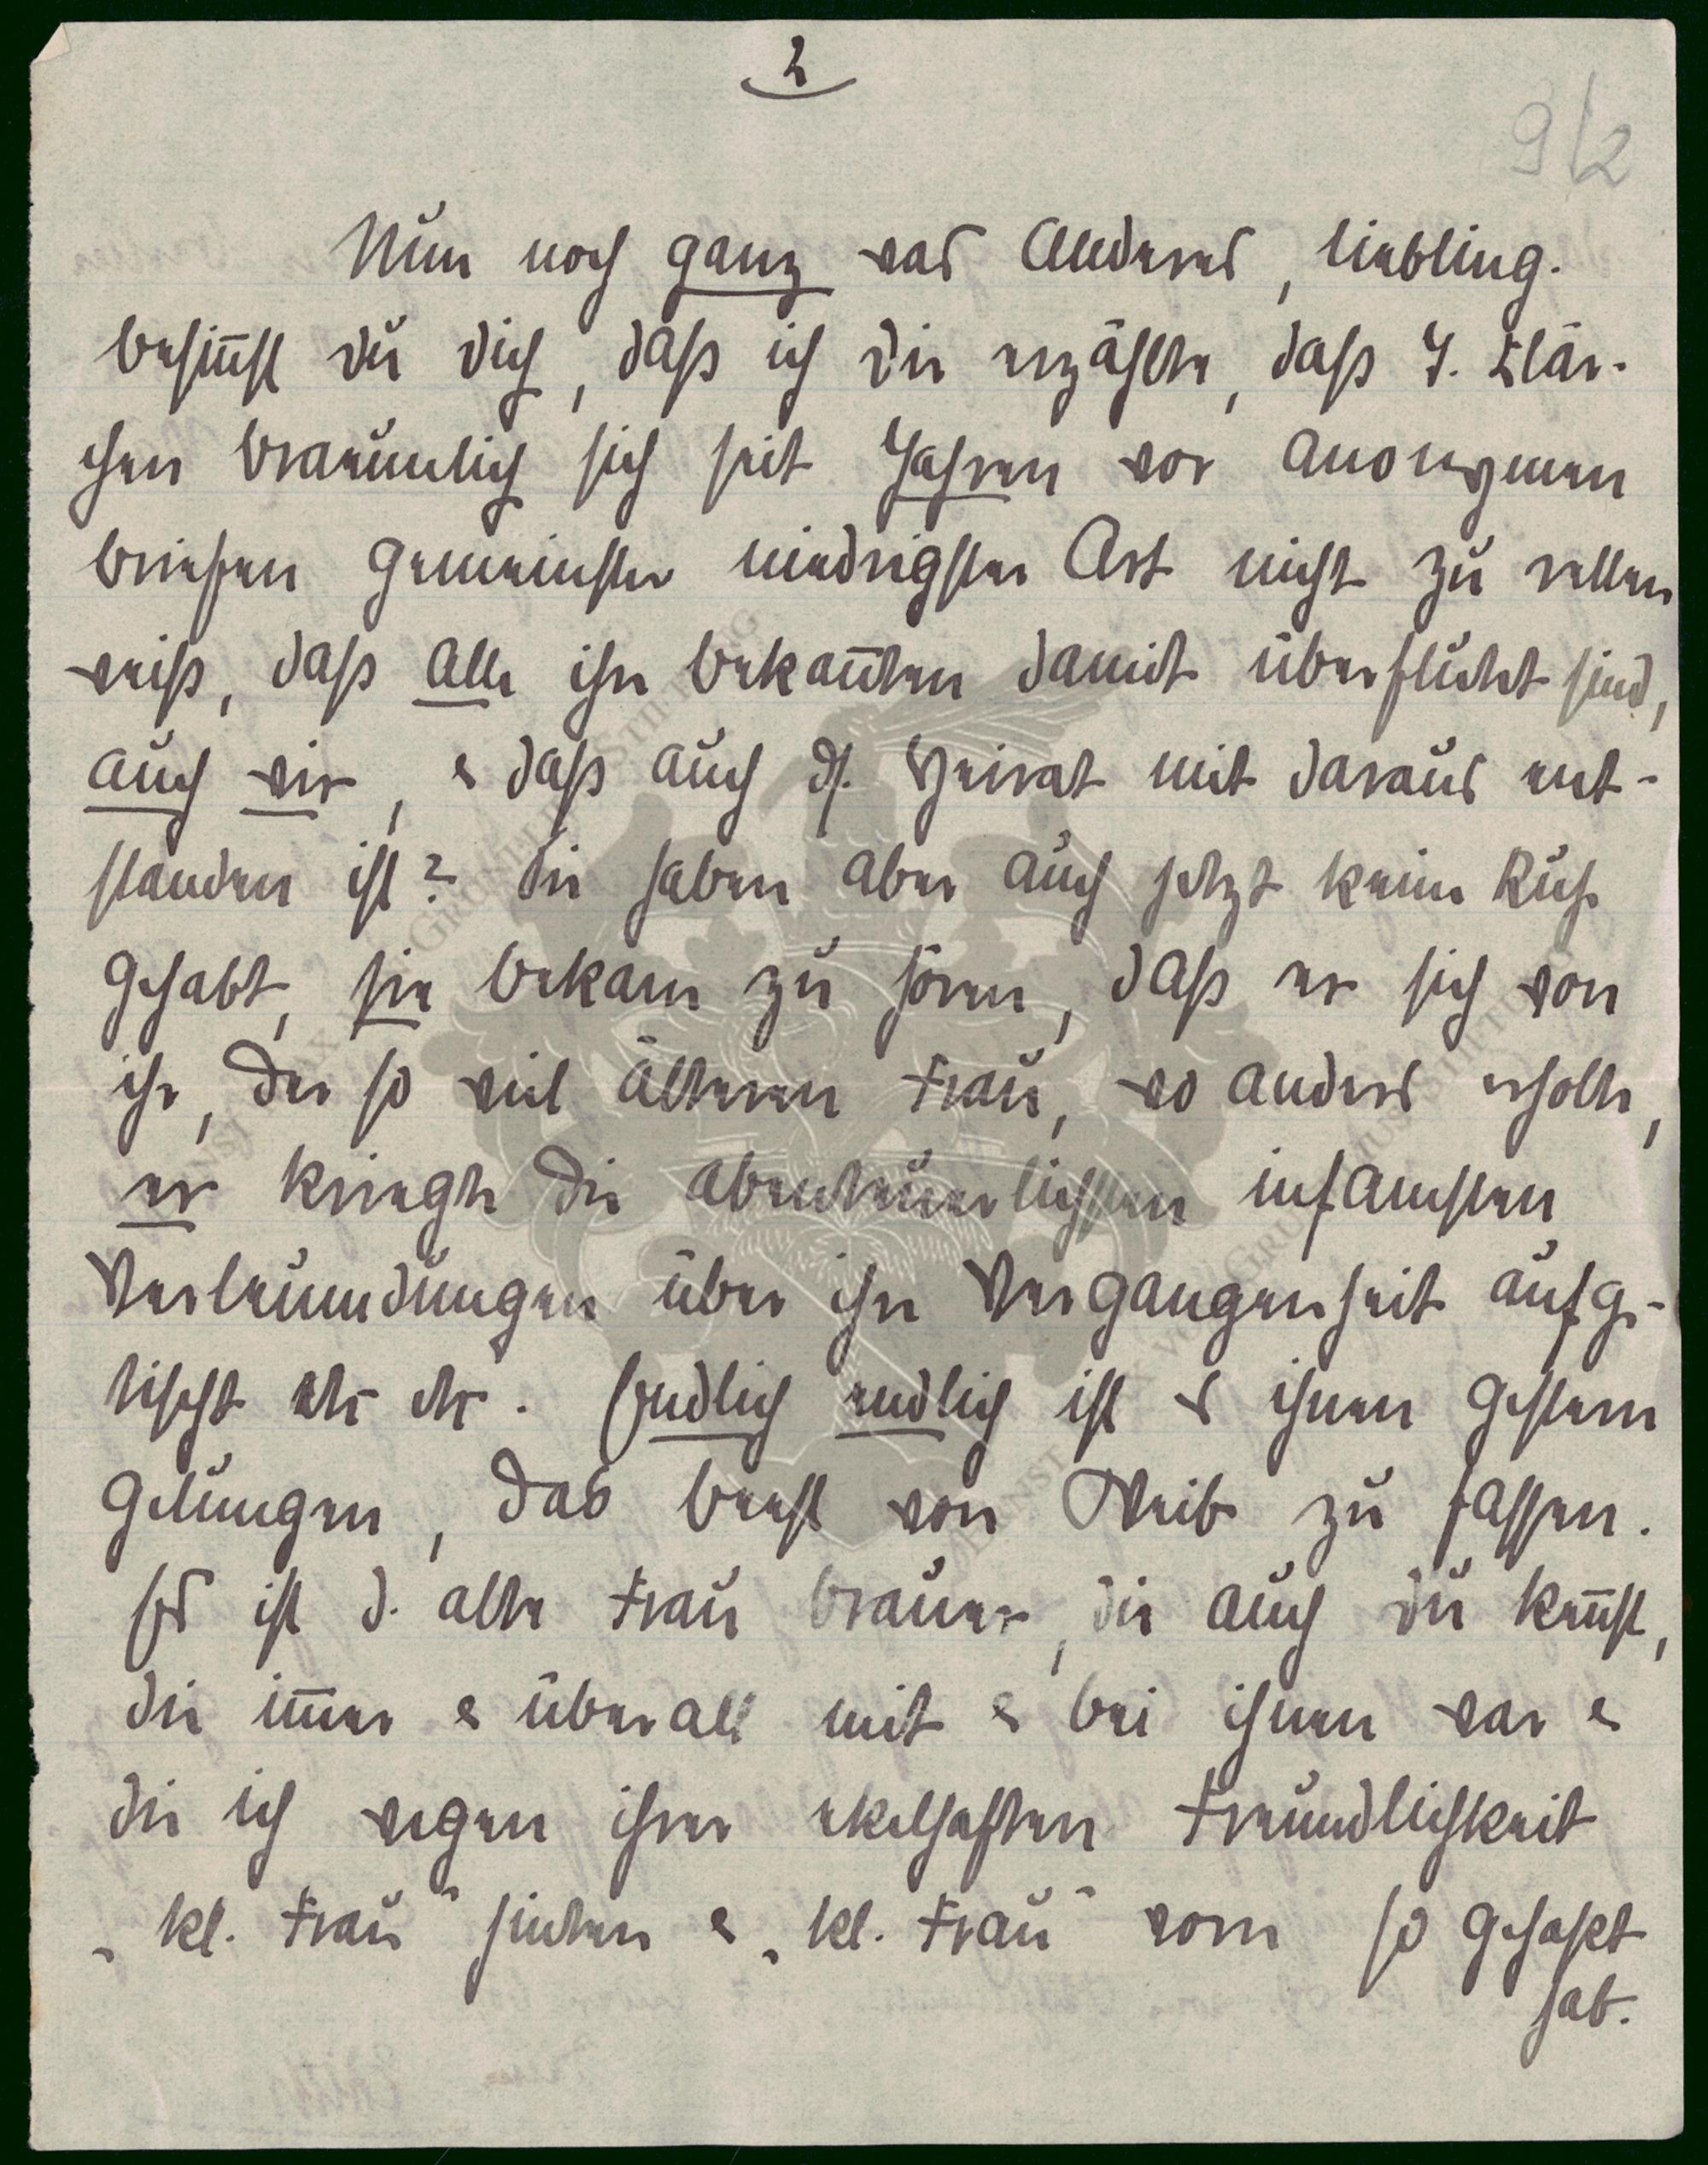 2
9/2
Nun noch ganz was Anderes, Liebling.
Besin̄st du dich, daß ich dir erzählte, daß J. Klär-
chen Braeunlich sich seit Jahren vor anonymen
Briefen gemeinster niedrigster Art nicht zu retten
weiß, daß alle ihre Bekan̄ten damit überflutet sind,
auch wir, & daß auch ds. Heirat mit daraus ent-
standen ist? Die haben aber auch jetzt keine Ruhe
gehabt, sie bekam zu hören, daß er sich von
ihr, der so viel älteren Frau, wo anders erholte,
er kriegte die abenteuerlichsten infamsten
Verleumdungen über ihre Vergangenheit aufge-
tischt etc etc. Endlich endlich ist es ihnen gestern
gelungen, das Beest von Weib zu fassen.
Es ist d. alte Frau Brauer, die auch du ken̄st,
die im̄er & überall mit & bei ihnen war &
die ich wegen ihrer ekelhaften Freundlichkeit
„kl. Frau" hinten & „kl. Frau" vorn so gehaßt
hab.